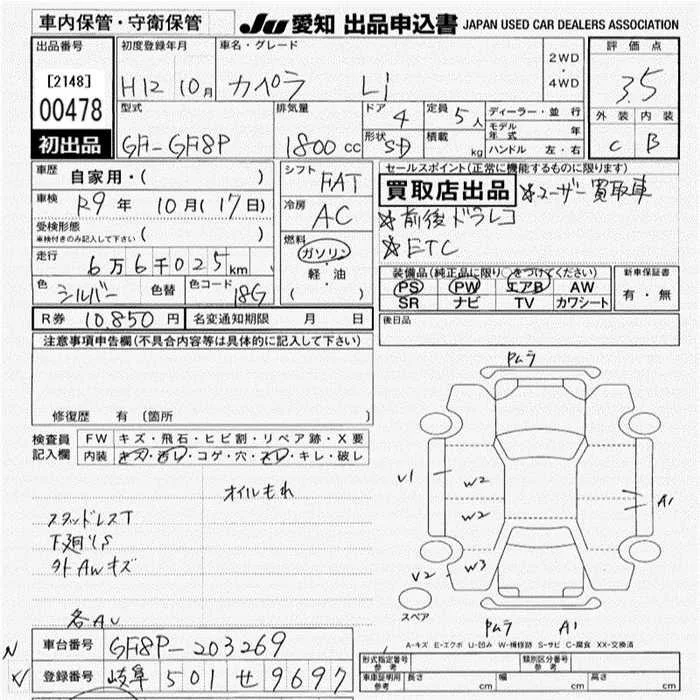 車内保管・守衛保管 JU 愛知 出品申込書 JAPAN USED CAR DEALERS ASSOCIATION
出品番号 初度登録年月 車名・グレード 2WD・4WD 評価点
[2148] H12 10月 カペラ Li 3.5
00478 型式 排気量 ドア 4 定員 5人 ディーラー・並行 外装 内装
モデル年式 年
初出品 GF-GF8P 1800cc 形状 SD 積載 kg ハンドル 左・右 C B
車歴 自家用・( ) シフト FAT セールスポイント(正常に機能するものに限ります)
車検 R9年 10月(17日) 冷房 AC 買取店出品 ☆ユーザー買取車
受検形態 ( ) ☆前後ドラレコ
車検付きのみ記入して下さい
走行 6万6千025km 燃料 ガソリン ☆ETC
軽・油
( )
装備品(純正品に限り○をつけてください) 新車保証書
色 シルバー 色替 色コード 18G PS PW エアB AW 有・無
SR ナビ TV カワシート
R券 10,850円 名変通知期限 月 日 後日品
注意事項申告欄(不具合内容等は具体的に記入して下さい)
修復歴 有 (箇所 )
検査員記入欄 FW キズ・飛石・ヒビ割・リペア跡・X要
内装 キズ・汚レ・コゲ・穴・スレ・キレ・破レ
オイルもれ
スタッドレスT
下廻りS
外AWキズ
各AU
Pムラ
U1
W2
W2
A1
U2 W3
スペア
PムラA1
A-キズ E-エクボ U-凹み W-補修跡 S-サビ C-腐食 XX-交換済
車台番号 GF8P-203269
登録番号 岐阜 501 せ 9697
形式指定番号 参考 類別区分番号 参考
車庫証明用 参考 長さ cm 幅 cm 高さ cm